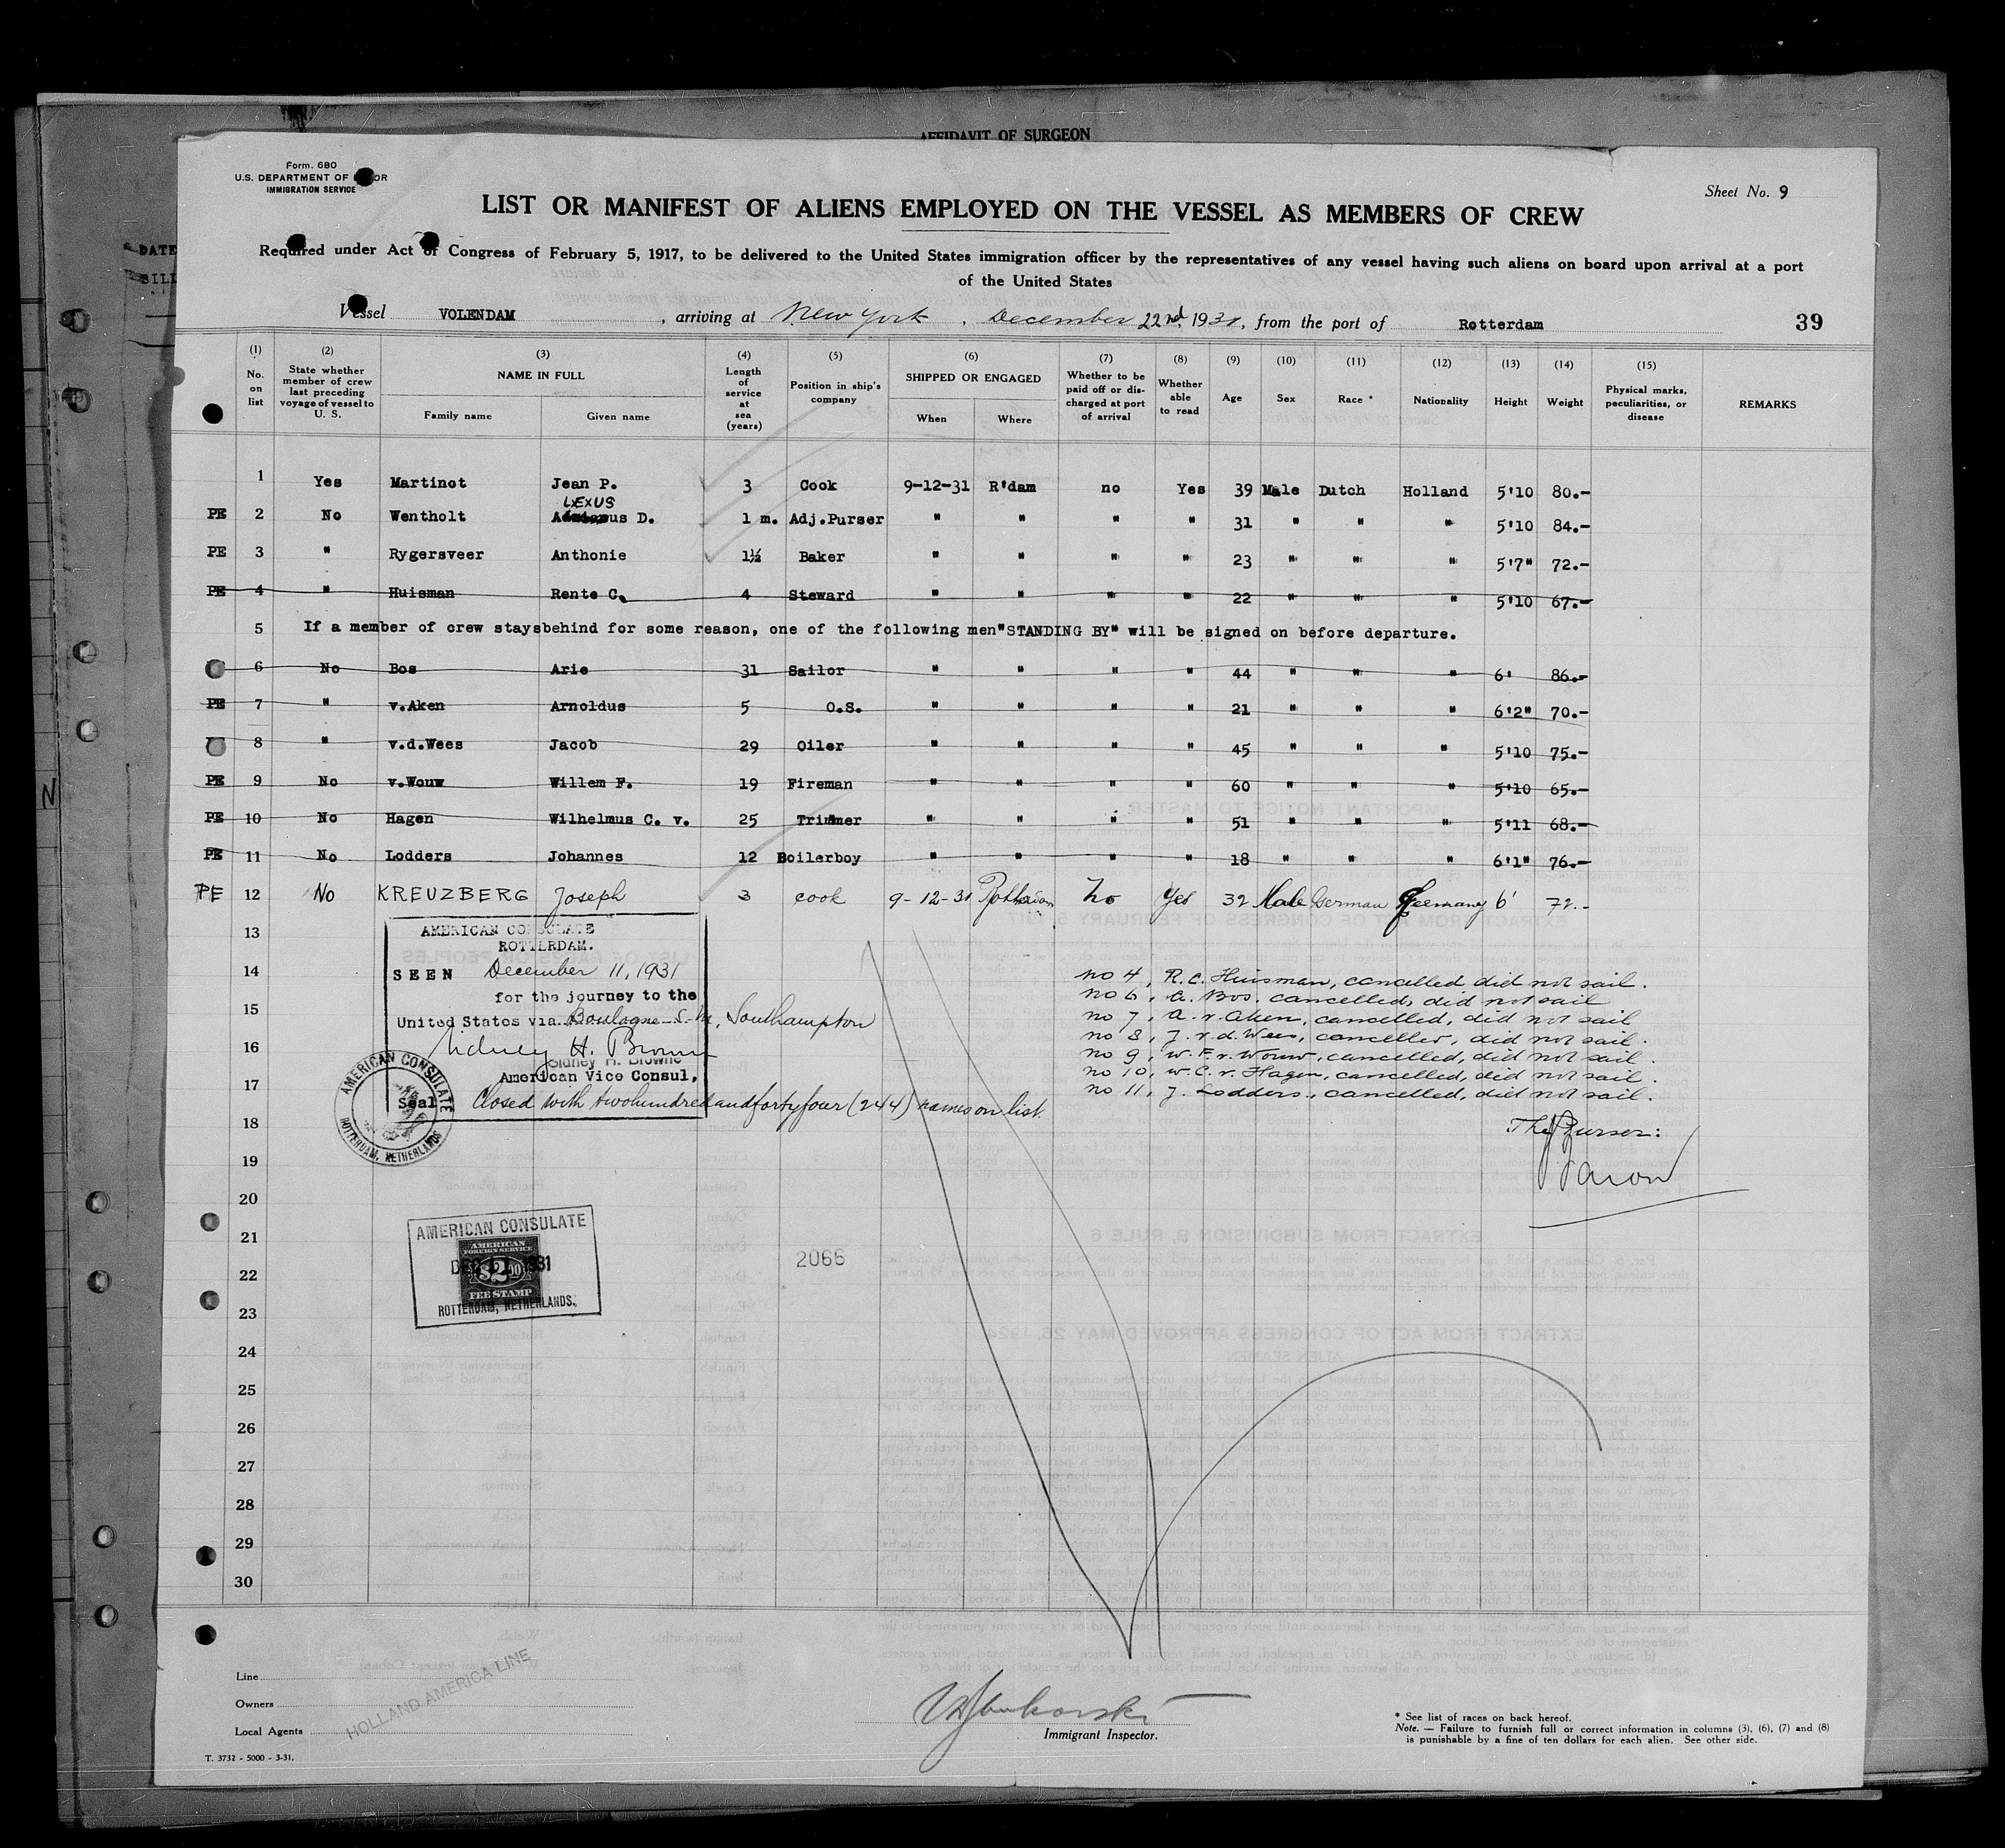 AFFIDAVIT OF SURGEON
Form. 680
U.S. DEPARTMENT OF OR
IMMIGRATION SERVICE
Sheet No. 9
LIST OR MANIFEST OF ALIENS EMPLOYED ON THE VESSEL AS MEMBERS OF CREW
Required under Act of Congress of February 5, 1917, to be delivered to the United States immigration officer by the representatives of any vessel having such aliens on board upon arrival at a port
of the United States
Vessel VOLENDAM, arriving at New York, December 22nd, 1931, from the port of Rotterdam 39
(1) No. on list (2) State whether member of crew last preceding voyage of vessel to U. S. (3) NAME IN FULL Family name Given name (4) Length of service at sea (years) (5) Position in ship's company (6) SHIPPED OR ENGAGED When Where (7) Whether to be paid off or discharged at port of arrival (8) Whether able to read (9) Age (10) Sex (11) Race * (12) Nationality (13) Height (14) Weight (15) Physical marks, peculiarities, or disease REMARKS
1 Yes Martinot Jean P. 3 Cook 9-12-31 R'dam no Yes 39 Male Dutch Holland 5'10 80.-
LEXUS
PE 2 No Wentholt A us D. 1 m. Adj.Purser " " " " 31 " " " 5'10 84.-
PE 3 " Rygersveer Anthonie 1½ Baker " " " " 23 " " " 5'7" 72.-
PE 4 " Huisman Rente C. 4 Steward " " " " 22 " " " 5'10 67.-
5 If a member of crew staysbehind for some reason, one of the following men"STANDING BY" will be signed on before departure.
6 No Bos Arie 31 Sailor " " " " 44 " " " 6' 86.-
PE 7 " v.Aken Arnoldus 5 O.S. " " " " 21 " " " 6'2" 70.-
8 " v.d.Wees Jacob 29 Oiler " " " " 45 " " " 5'10 75.-
PE 9 No v.Wouw Willem F. 19 Fireman " " " " 60 " " " 5'10 65.-
PE 10 No Hagen Wilhelmus C. v. 25 Trimmer " " " " 51 " " " 5'11 68.-
PE 11 No Lodders Johannes 12 Boilerboy " " " " 18 " " " 6'1" 76.-
PE 12 No KREUZBERG Joseph 3 cook 9-12-31 Rotterdam no yes 32 Male German Germany 6' 72.-
13
AMERICAN CONSULATE
ROTTERDAM.
14
SEEN December 11, 1931
for the journey to the
15
United States via Boulogne s. M, Southampton
16
Sidney H. Browne
Sidney H. Browne
American Vice Consul.
17
Seal Closed with twohundredandfortyfour (244) names on list.
AMERICAN CONSULATE
ROTTERDAM, NETHERLANDS
no 4, R.C. Huisman, cancelled did not sail.
no 6, A. Bos. cancelled, did not sail
no 7, A. v. Aken, cancelled, did not sail
no 8, J. v. d. Wees, cancelled, did not sail.
no 9, W. F. v. Wouw, cancelled, did not sail.
no 10, W. C. v. Hagen, cancelled, did not sail.
no 11, J. Lodders, cancelled, did not sail.
The Purser:
18
19
20
21
22
23
24
25
26
27
28
29
30
AMERICAN CONSULATE
AMERICAN
FOREIGN SERVICE
DEC 11 1931
$2.00
FEE STAMP
ROTTERDAM, NETHERLANDS.
2066
Line
Owners
Local Agents
HOLLAND AMERICA LINE
T. 3732 - 5000 - 3-31.
Immigrant Inspector.
* See list of races on back hereof.
Note. — Failure to furnish full or correct information in columns (3), (6), (7) and (8)
is punishable by a fine of ten dollars for each alien. See other side.